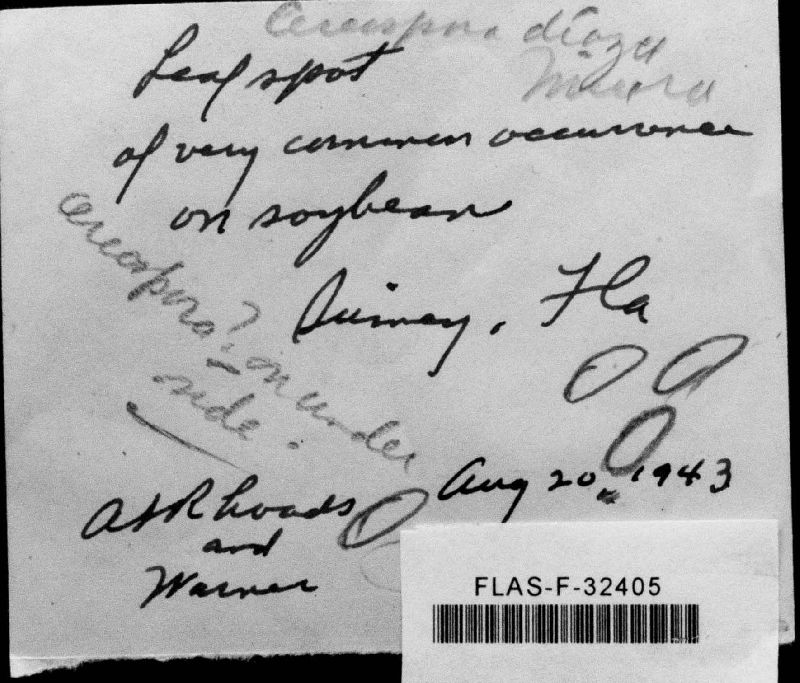 Cercospora diazu
Miura
Leaf spot
of very common occurrence
on soybean
Cercospora? on under
side.
Quincy, Fla
Aug 20, 1943
A S Rhoads
and
Warner
FLAS-F-32405